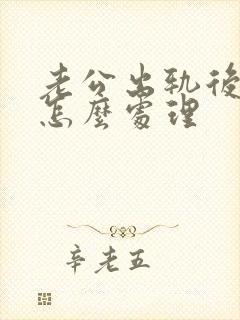 老公出轨後
怎麼處理
辛老五